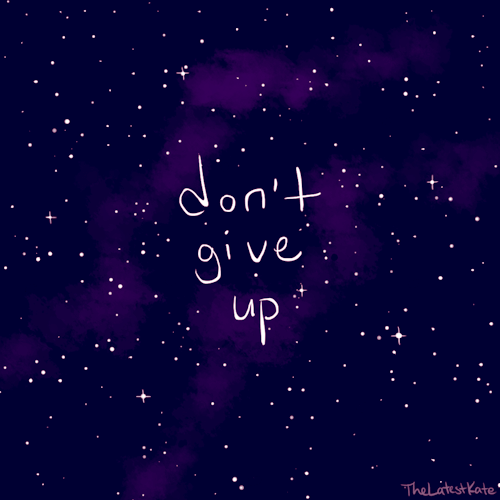 don't
give
up
TheLatestKate